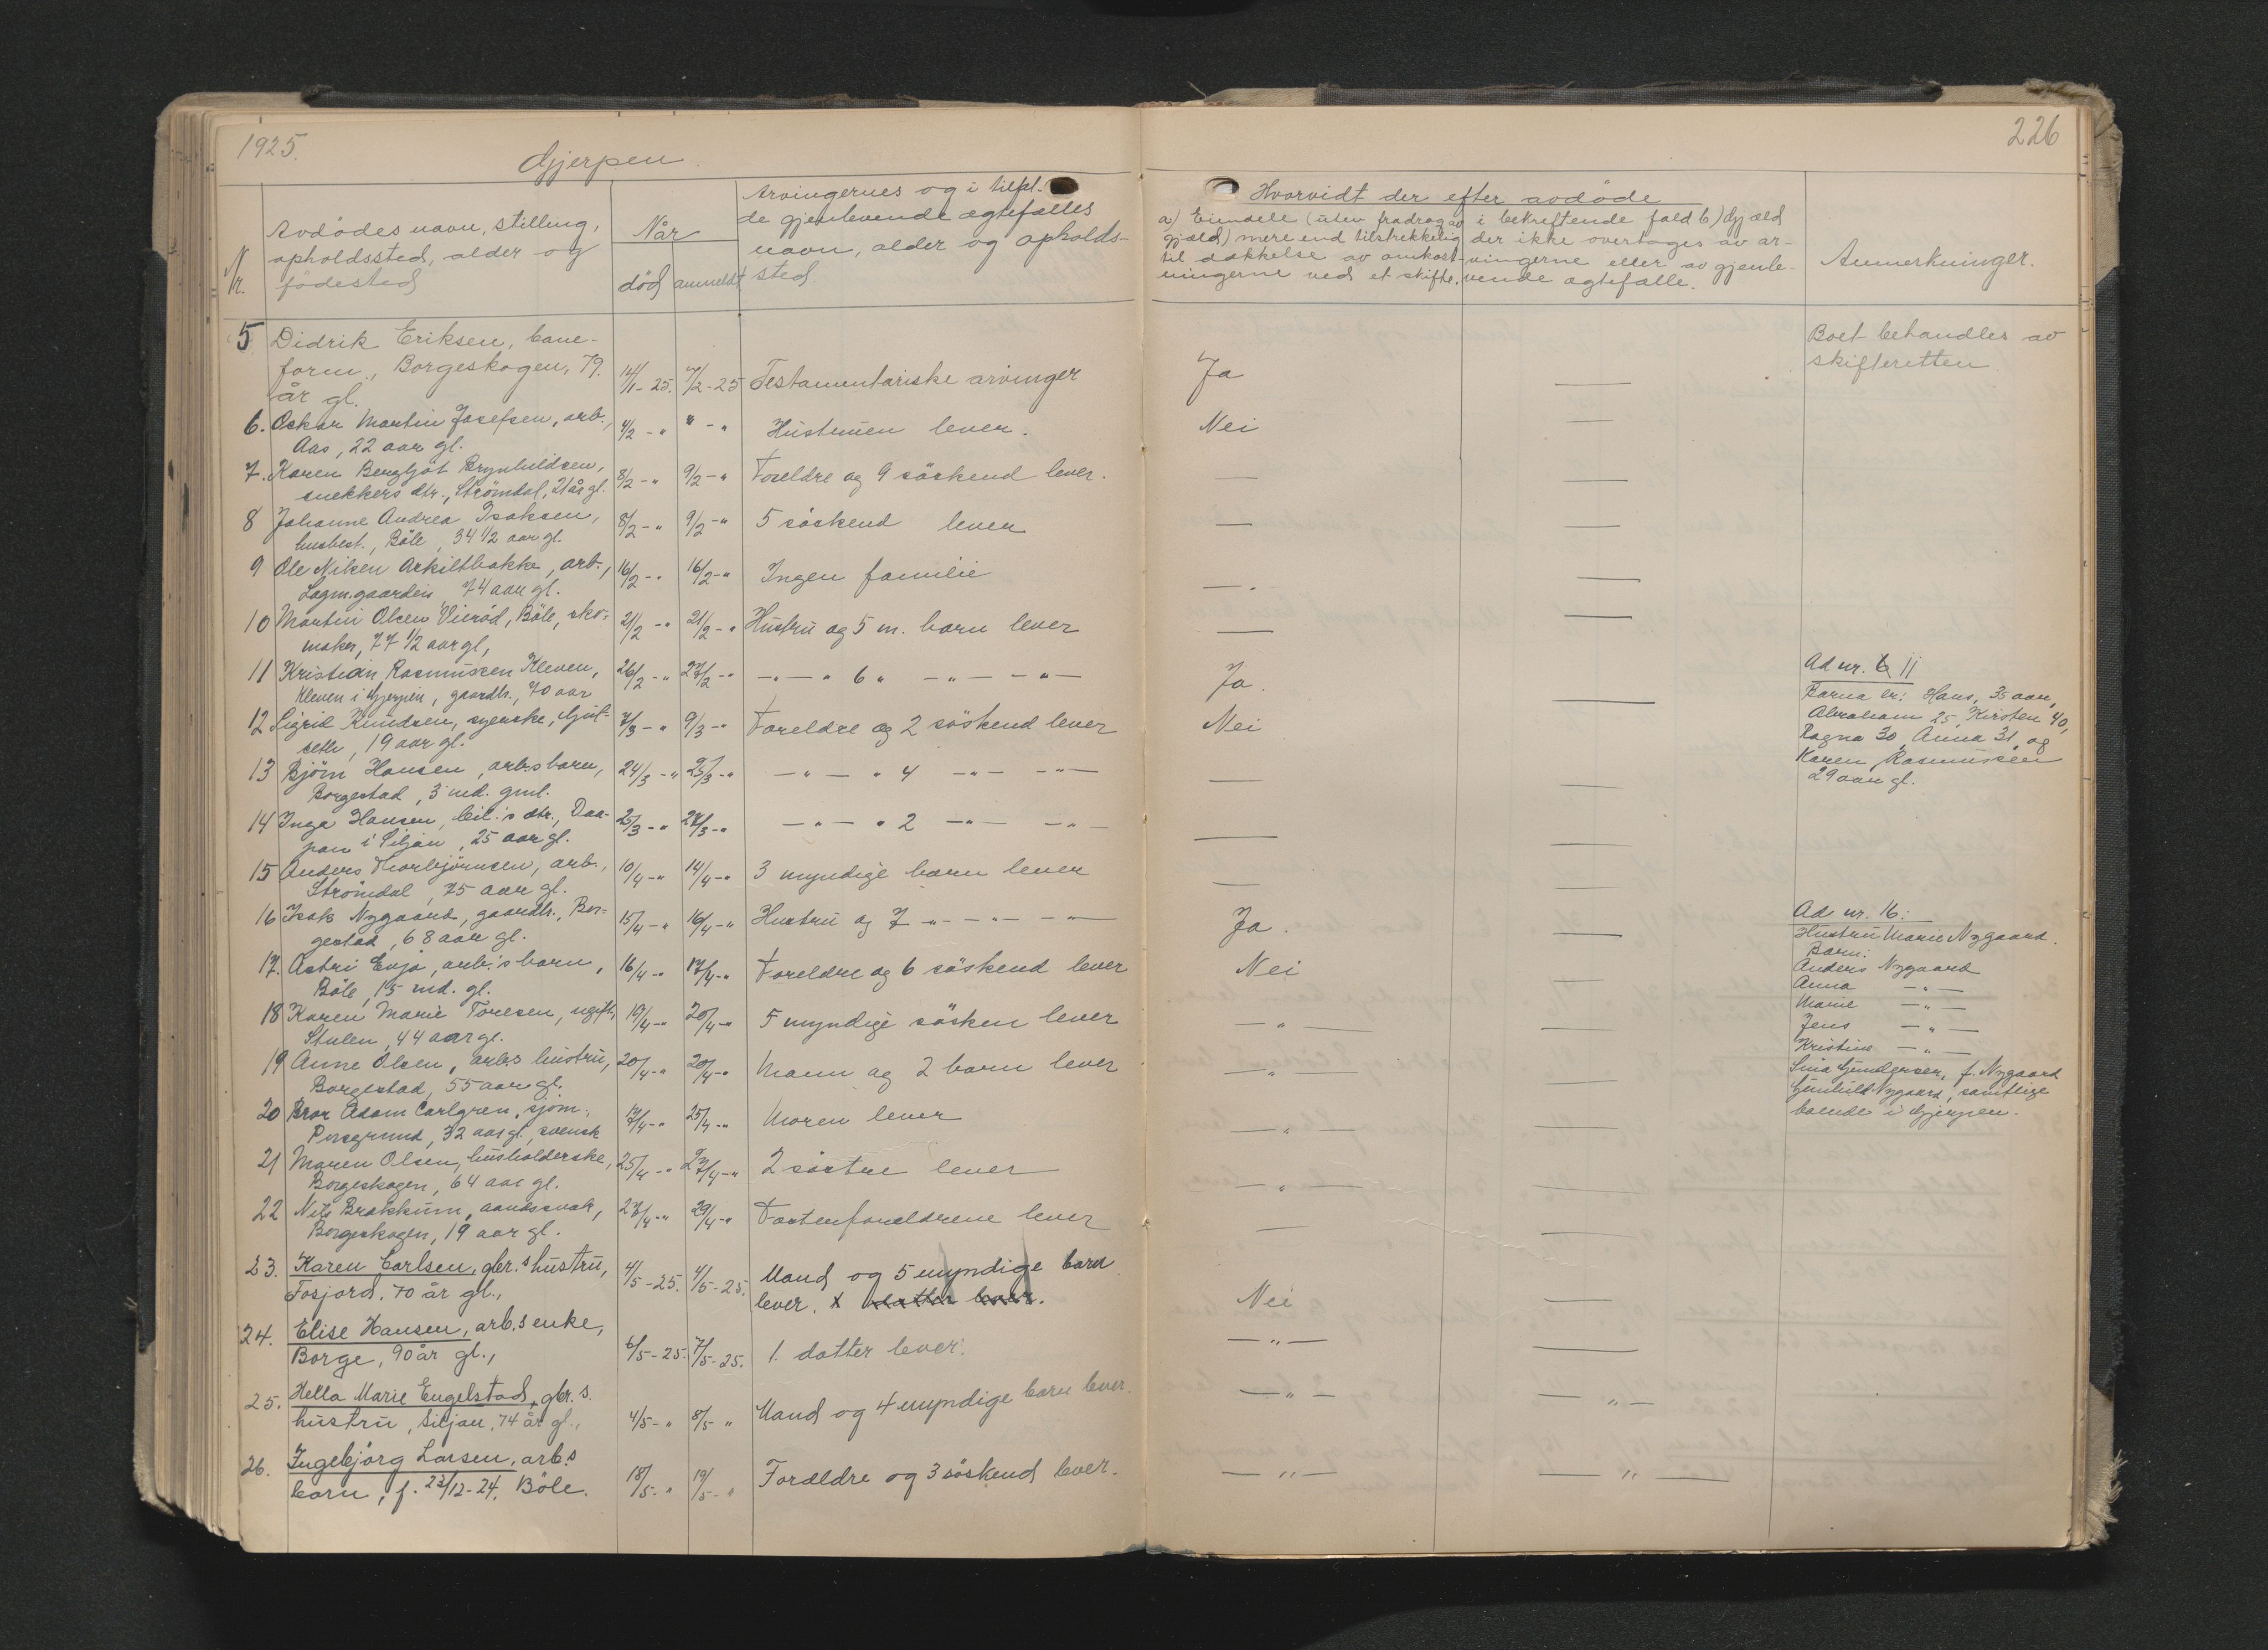 1925.
226
Gjerpen.
Nr.
Avdödes navn, stilling,
opholdssted, alder og
födested
Når
död anmeldt
Arvingernes og i tilfæl-
de gjenlevende ægtefælles
navn, alder og opholds-
sted
Hvorvidt der efter avdöde
a) Eiendele (uten fradrag av
gjæld) mere end tilstrekkelig
til dækkelse av omkost-
ningerne ved et skifte.
i bekreftende fald b) Gjæld
der ikke overtages av ar-
vingerne eller av gjenle-
vende ægtefælle.
Anmerkninger.
5 Didrik Eriksen, bane-
form., Borgeskogen, 79.
år gl.
14/1-25. 7/2-25 Testamentariske arvinger Ja —
Boet behandles av
skifteretten
6. Oskar Martin Josefsen, arb.,
Aas, 22 aar gl.
4/2 - " " - " Hustruen lever. Nei —
7. Karen Bergljot Brynhildsen,
snekkers dtr., Strömdal, 21 år gl.
8/2 - " 9/2 - " Foreldre og 9 söskend lever. — —
8 Johanne Andrea Isaksen,
husbest., Böle, 34 1/2 aar gl.
8/2 - " 9/2 - " 5 söskend lever — —
9 Ole Nilsen Arkiltbakke, arb.,
Lagm.gaarden 74 aar gl.
16/2 - " 16/2 - " Ingen familie — —
10 Martin Olsen Vieröd, Böle, sko-
maker, 77 1/2 aar gl,
21/2 - " 21/2 - " Hustru og 5 m. barn lever — —
11 Kristian Rasmussen Kleven,
Kleven i Gjerpen, gaardbr., 70 aar
26/2 - " 27/2 - " — " — " 6 " — " — — " — Ja. —
Ad nr. 11
Barna er: Hans, 35 aar,
Abraham 25, Kirsten 40,
Ragna 30, Anna 31, og
Karen Rasmussen
29 aar gl.
12 Sigrid Knudsen, syerske, Gjul-
seth, 19 aar gl.
7/3 - " 9/3 - " Foreldre og 2 söskend lever Nei —
13 Björn Hansen, arb.s barn,
Borgestad, 3 md. gml.
24/3 - " 25/3 - " — " — " 4 — " — — " — — —
14 Inga Hansen, dtr., Daa-
pan i Siljan, 25 aar gl.
25/3 - " 28/3 - " — " — " 2 — " — — " — — —
15 Anders Thorbjörnsen, arb.,
Strömdal, 75 aar gl.
10/4 - " 14/4 - " 3 myndige barn lever — —
16 Isak Nygaard, gaardbr., Bor-
gestad, 68 aar gl.
15/4 - " 16/4 - " Hustru og 7 — " — — " — — " — Ja. —
Ad nr. 16:
Hustru Marie Nygaard.
Barn:
Anders Nygaard
Anna — " —
Marie — " —
Jens — " —
Kristine — " —
Sina Gundersen, f. Nygaard
Gunhild Nygaard, samtlige
boende i Gjerpen.
17. Astri Evja, arb.'s barn,
Böle, 15 md. gl.
16/4 - " 17/4 - " Foreldre og 6 söskend lever Nei —
18 Karen Marie Toresen, ugift,
Stulen, 44 aar gl.
19/4 - " 20/4 - " 5 myndige sösken lever — " — —
19 Anne Olsen, arb.s hustru,
Borgestad, 55 aar gl.
20/4 - " 20/4 - " Mann og 2 barn lever — " — —
20 Bror Adam Carlgren, sjöm.,
Porsgrund, 32 aar gl., svensk
17/4 - " 25/4 - " Moren lever — " — —
21 Maren Olsen, husholderske,
Borgeskogen, 64 aar gl.
25/4 - " 27/4 - " 2 söstre lever — " — —
22 Nils Brakkum, aandssvak,
Borgeskogen, 19 aar gl.
27/4 - " 29/4 - " Fosterforeldrene lever — —
23. Karen Carlsen, gbr.s hustru,
Fosjord, 70 år gl.,
4/5-25. 4/5-25. Mand og 5 myndige barn
lever. Nei —
24. Elise Hansen, arb.s enke,
Borge, 90 år gl.,
6/5-25. 7/5-25. 1 datter lever. — " — —
25. Hella Marie Engelstad, gbr.s
hustru, Siljan, 74 år gl.,
4/5 - " 8/5 " Mand og 4 myndige barn lever. — " — — " —
26. Ingebjörg Larsen, arb.s
barn, f. 23/12-24, Böle.
18/5 - " 19/5 - " Forældre og 3 söskend lever. — " — — " —